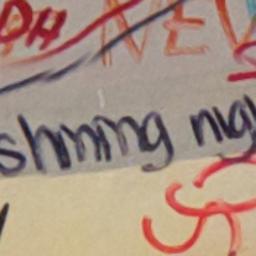 PH NEV
shining nig